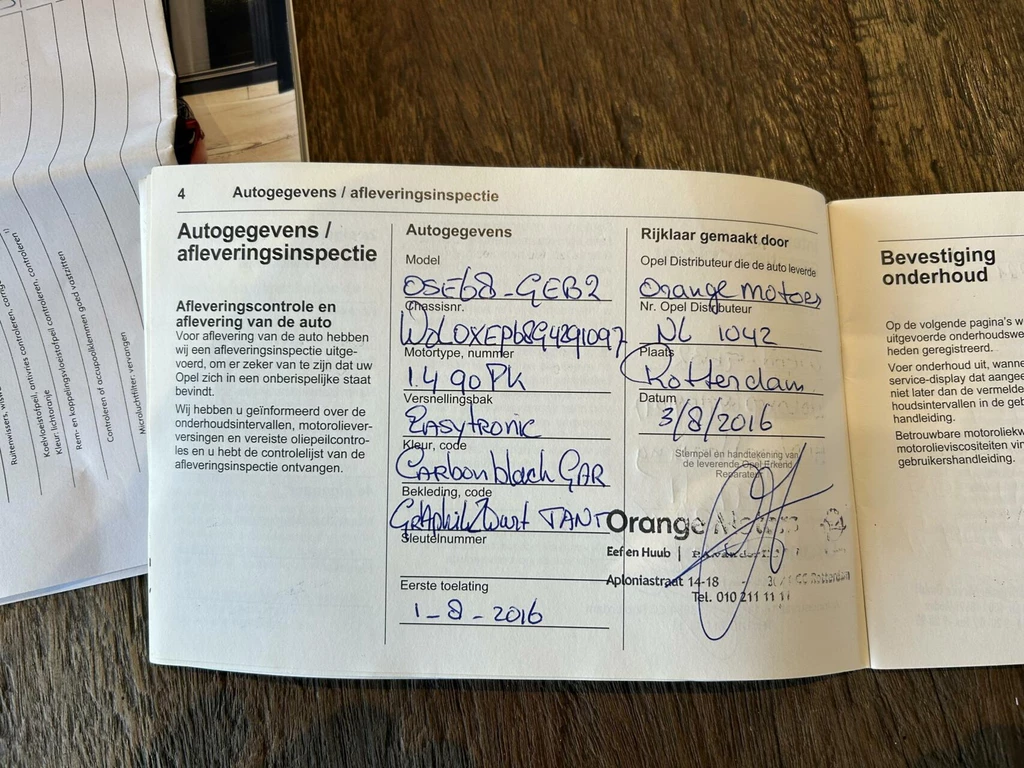 4 Autogegevens / afleveringsinspectie
Autogegevens /
afleveringsinspectie
Afleveringscontrole en
aflevering van de auto
Voor aflevering van de auto hebben
wij een afleveringsinspectie uitge-
voerd, om er zeker van te zijn dat uw
Opel zich in een onberispelijke staat
bevindt.
Wij hebben u geïnformeerd over de
onderhoudsintervallen, motoroliever-
versingen en vereiste oliepeilcontro-
les en u hebt de controlelijst van de
afleveringsinspectie ontvangen.
Autogegevens
Model
OSE68-GEB2
Chassisnr.
W0L0XEP68G4291097
Motortype, nummer
1.4 90 PK
Versnellingsbak
Easytronic
Kleur, code
Carbon black GAR
Bekleding, code
Graphik Zwart TANT
Sleutelnummer
Eerste toelating
1-8-2016
Rijklaar gemaakt door
Opel Distributeur die de auto leverde
Orange motors
Nr. Opel Distributeur
NL 1042
Plaats
Rotterdam
Datum
3/8/2016
Stempel en handtekening van
de leverende Opel Erkend
Reparateur
Orange Motors
Eef en Huub |
Aploniastraat 14-18 - Rotterdam
Tel. 010 211 11 11
Bevestiging
onderhoud
Op de volgende pagina's w
uitgevoerde onderhoudswe
heden geregistreerd.
Voer onderhoud uit, wanne
service-display dat aangee
niet later dan de vermelde
houdsintervallen in de geb
handleiding.
Betrouwbare motoroliekw
motorolieviscositeiten vin
gebruikershandleiding.
Koelvloeistofpeil, antivries controleren, corrigeren
Kleur: lichtoranje
Rem- en koppelingsvloeistofpeil controleren, controleren
Controleren of accupoolklemmen goed vastzitten
Microluchtfilter: vervangen